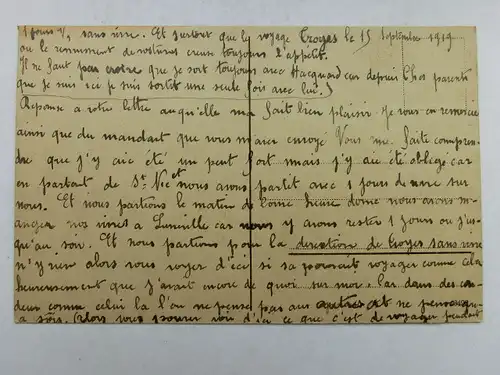 1 jours 1/2 sans vivre. Et surtout que le voyage Troyes le 15 Septembre 1919
ou le remuement de voitures creuse toujours l'appetit.
Il ne faut pas croire que je sort toujours avec Hacquard car depuis Chos parents
que je suis ici je suis sortit une seule fois avec lui.)
Reponse a votre lettre auquelle ma fait bien plaisir. Je vous en remercie
ainsi que du mandat que vous m'avez envoyé. Vous me faite compren-
dre que j'y aie été un peut fort mais j'y aie été oblegé car
en partant de St Nic nous avons partit avec 1 jours de vivre sur
nous. Et nous partions le matin de bonne heure donc nous avons m-
anger nos vivres a Luneville car nous y avons restes 1 jours ou j'us-
qu'au soir. Et nous partions pour la direction de Troyes sans vivre
n'y rien alors vous voyez d'ici si sa pouvait voyager comme cela
heureusement que j'avait encore de quoi sur moi. Car dans des con-
deux comme celui la l'on ne pense pas aux autres et ne pense que
a sois. (Alors vous pouvez voir d'ici ce que c'est de voyager pendant